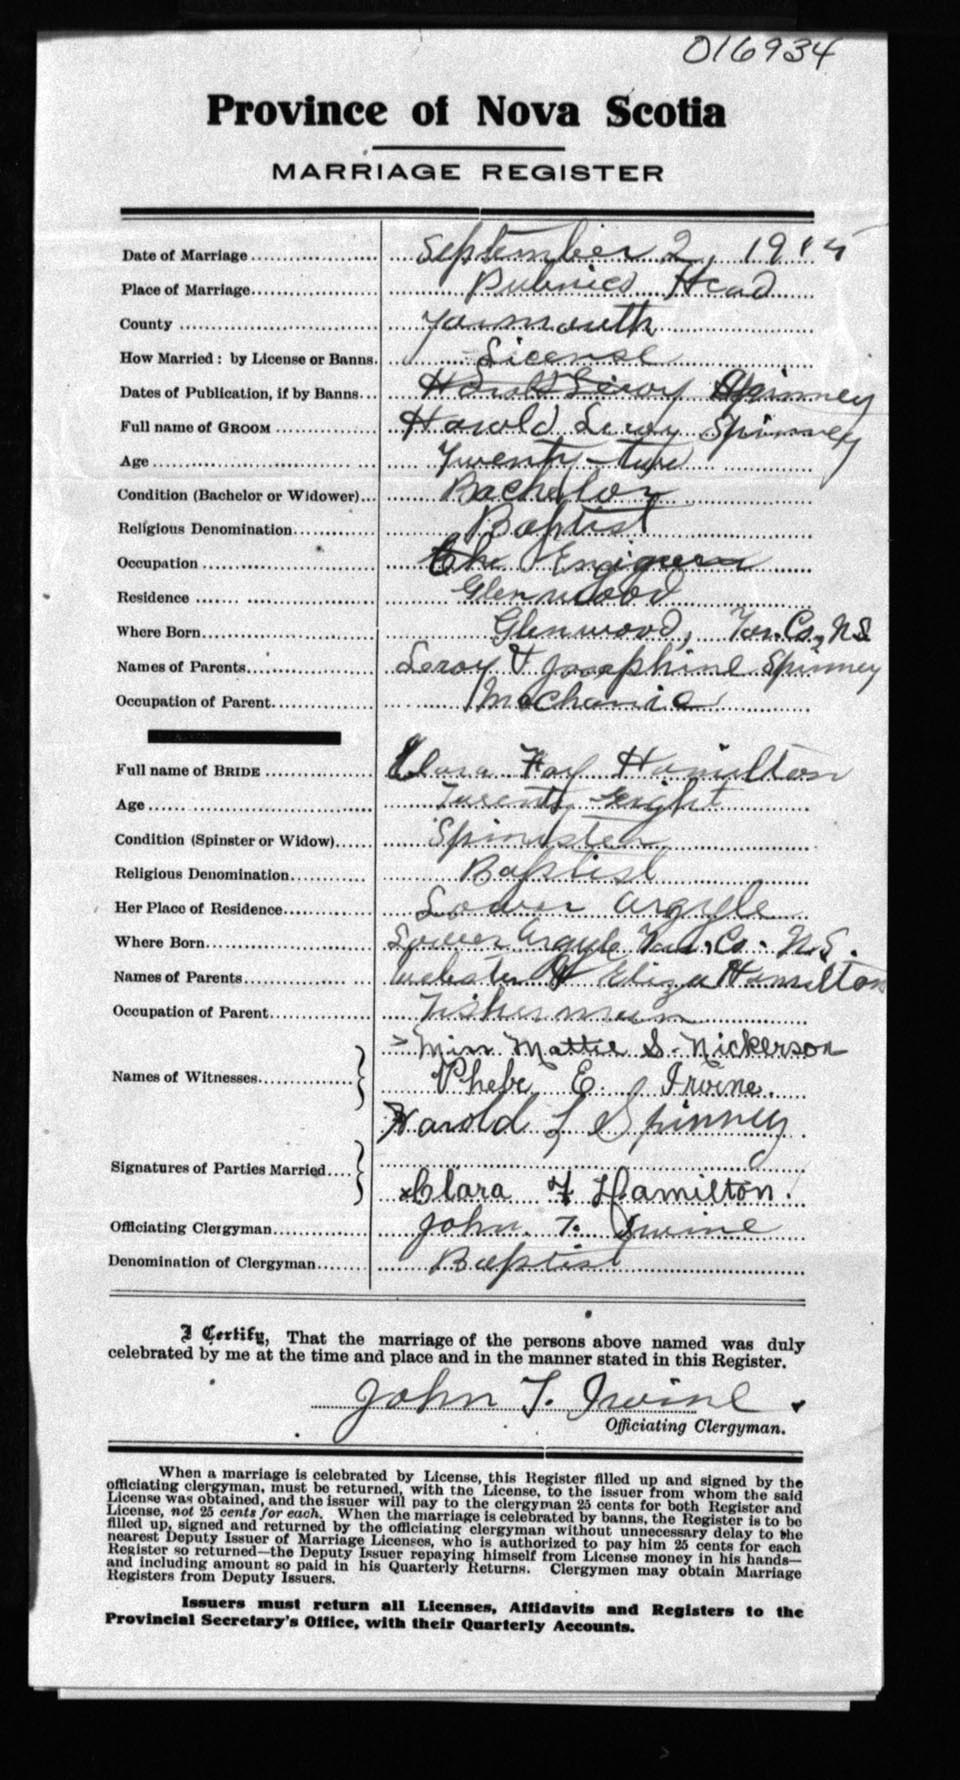 016934
Province of Nova Scotia
MARRIAGE REGISTER
Date of Marriage September 2, 1915
Place of Marriage Pubnico Head
County Yarmouth
How Married: by License or Banns. License
Dates of Publication, if by Banns Harold Leroy Spinney
Full name of GROOM Harold Leroy Spinney
Age Twenty-two
Condition (Bachelor or Widower) Bachelor
Religious Denomination Baptist
Occupation Engineer
Residence Glenwood
Where Born Glenwood, Yar. Co, N.S
Names of Parents Leroy & Josephine Spinney
Occupation of Parent Mechanic
Full name of BRIDE Clara Fay Hamilton
Age Twenty eight
Condition (Spinster or Widow) Spinster
Religious Denomination Baptist
Her Place of Residence Lower Argyle
Where Born Lower Argyle Yar. Co. N.S.
Names of Parents Webster & Eliza Hamilton
Occupation of Parent Fisherman
Miss Mattie S. Nickerson
Names of Witnesses Phebe E. Irvine.
Harold L Spinney
Signatures of Parties Married
Clara F Hamilton.
Officiating Clergyman John T. Irvine
Denomination of Clergyman Baptist
I Certify, That the marriage of the persons above named was duly
celebrated by me at the time and place and in the manner stated in this Register.
John T. Irvine
Officiating Clergyman.
When a marriage is celebrated by License, this Register filled up and signed by the
officiating clergyman, must be returned, with the License, to the issuer from whom the said
License was obtained, and the issuer will pay to the clergyman 25 cents for both Register and
License, not 25 cents for each. When the marriage is celebrated by banns, the Register is to be
filled up, signed and returned by the officiating clergyman without unnecessary delay to the
nearest Deputy Issuer of Marriage Licenses, who is authorized to pay him 25 cents for each
Register so returned—the Deputy Issuer repaying himself from License money in his hands—
and including amount so paid in his Quarterly Returns. Clergymen may obtain Marriage
Registers from Deputy Issuers.
Issuers must return all Licenses, Affidavits and Registers to the
Provincial Secretary's Office, with their Quarterly Accounts.